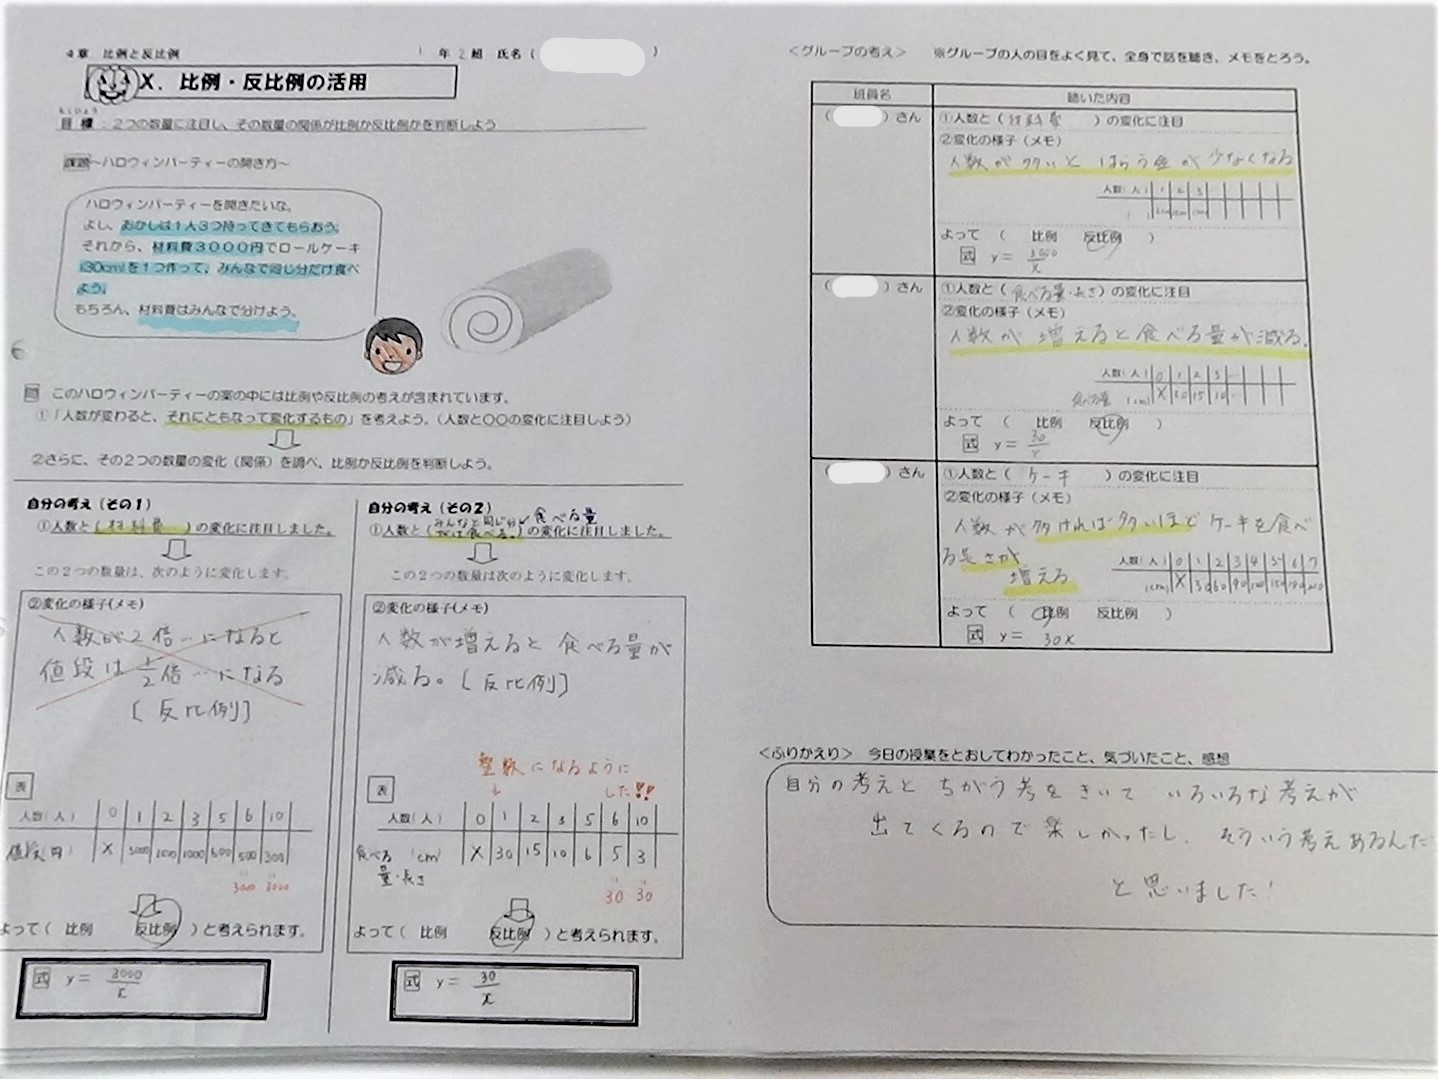 4章 比例と反比例
1 年 2 組 氏名（ ）
X．比例・反比例の活用
もくひょう
目標：2つの数量に注目し、その数量の関係が比例か反比例かを判断しよう
課題～ハロウィンパーティーの開き方～
ハロウィンパーティーを開きたいな。
よし、おかしは1人3つ持ってきてもらおう。
それから、材料費3000円でロールケーキ
(30cm)を1つ作って、みんなで同じ分だけ食べ
よう。
もちろん、材料費はみんなで分けよう。
問 このハロウィンパーティーの案の中には比例や反比例の考えが含まれています。
①「人数が変わると、それにともなって変化するもの」を考えよう。（人数と〇〇の変化に注目しよう）
②さらに、その2つの数量の変化（関係）を調べ、比例か反比例を判断しよう。
自分の考え（その1）
①人数と（材料費）の変化に注目しました。
この2つの数量は、次のように変化します。
②変化の様子(メモ)
人数が2倍…になると
値段は1/2倍…になる
［反比例］
表
人数(人) 0 1 2 3 5 6 10
値段(円) X 3000 1500 1000 600 500 300
3000 3000
よって（ 比例 反比例 ）と考えられます。
式 y= 3000/x
自分の考え（その2）
食べる量
みんなと同じ分
だけ食べる。
①人数と（ ）の変化に注目しました。
この2つの数量は次のように変化します。
②変化の様子(メモ)
人数が増えると食べる量が
減る。［反比例］
整数になるように
した!!
表
人数(人) 0 1 2 3 5 6 10
食べる (cm) X 30 15 10 6 5 3
量・長さ
30 30
よって（ 比例 反比例 ）と考えられます。
式 y= 30/x
＜グループの考え＞ ※グループの人の目をよく見て、全身で話を聴き、メモをとろう。
班員名 聴いた内容
（ ）さん ①人数と（材料費）の変化に注目
②変化の様子（メモ）
人数が多いと はらう金が少なくなる
人数(人) 1 2 3 …
よって（ 比例 反比例 ）
式 y= 3000/x
（ ）さん ①人数と（食べる量・長さ）の変化に注目
②変化の様子（メモ）
人数が増えると食べる量が減る。
人数(人) 0 1 2 3 …
食べる量 (cm) X 30 15 10 …
よって（ 比例 反比例 ）
式 y= 30/x
（ ）さん ①人数と（ケーキ）の変化に注目
②変化の様子（メモ）
人数が多ければ多いほどケーキを食べ
る長さが
増える
人数(人) 0 1 2 3 4 5 6 7
(cm) X 30 60 90 120 150 180 210
よって（ 比例 反比例 ）
式 y= 30x
＜ふりかえり＞ 今日の授業をとおしてわかったこと、気づいたこと、感想
自分の考えとちがう考をきいて いろいろな考えが
出てくるので楽しかったし、そういう考えあるんだ
と思いました！